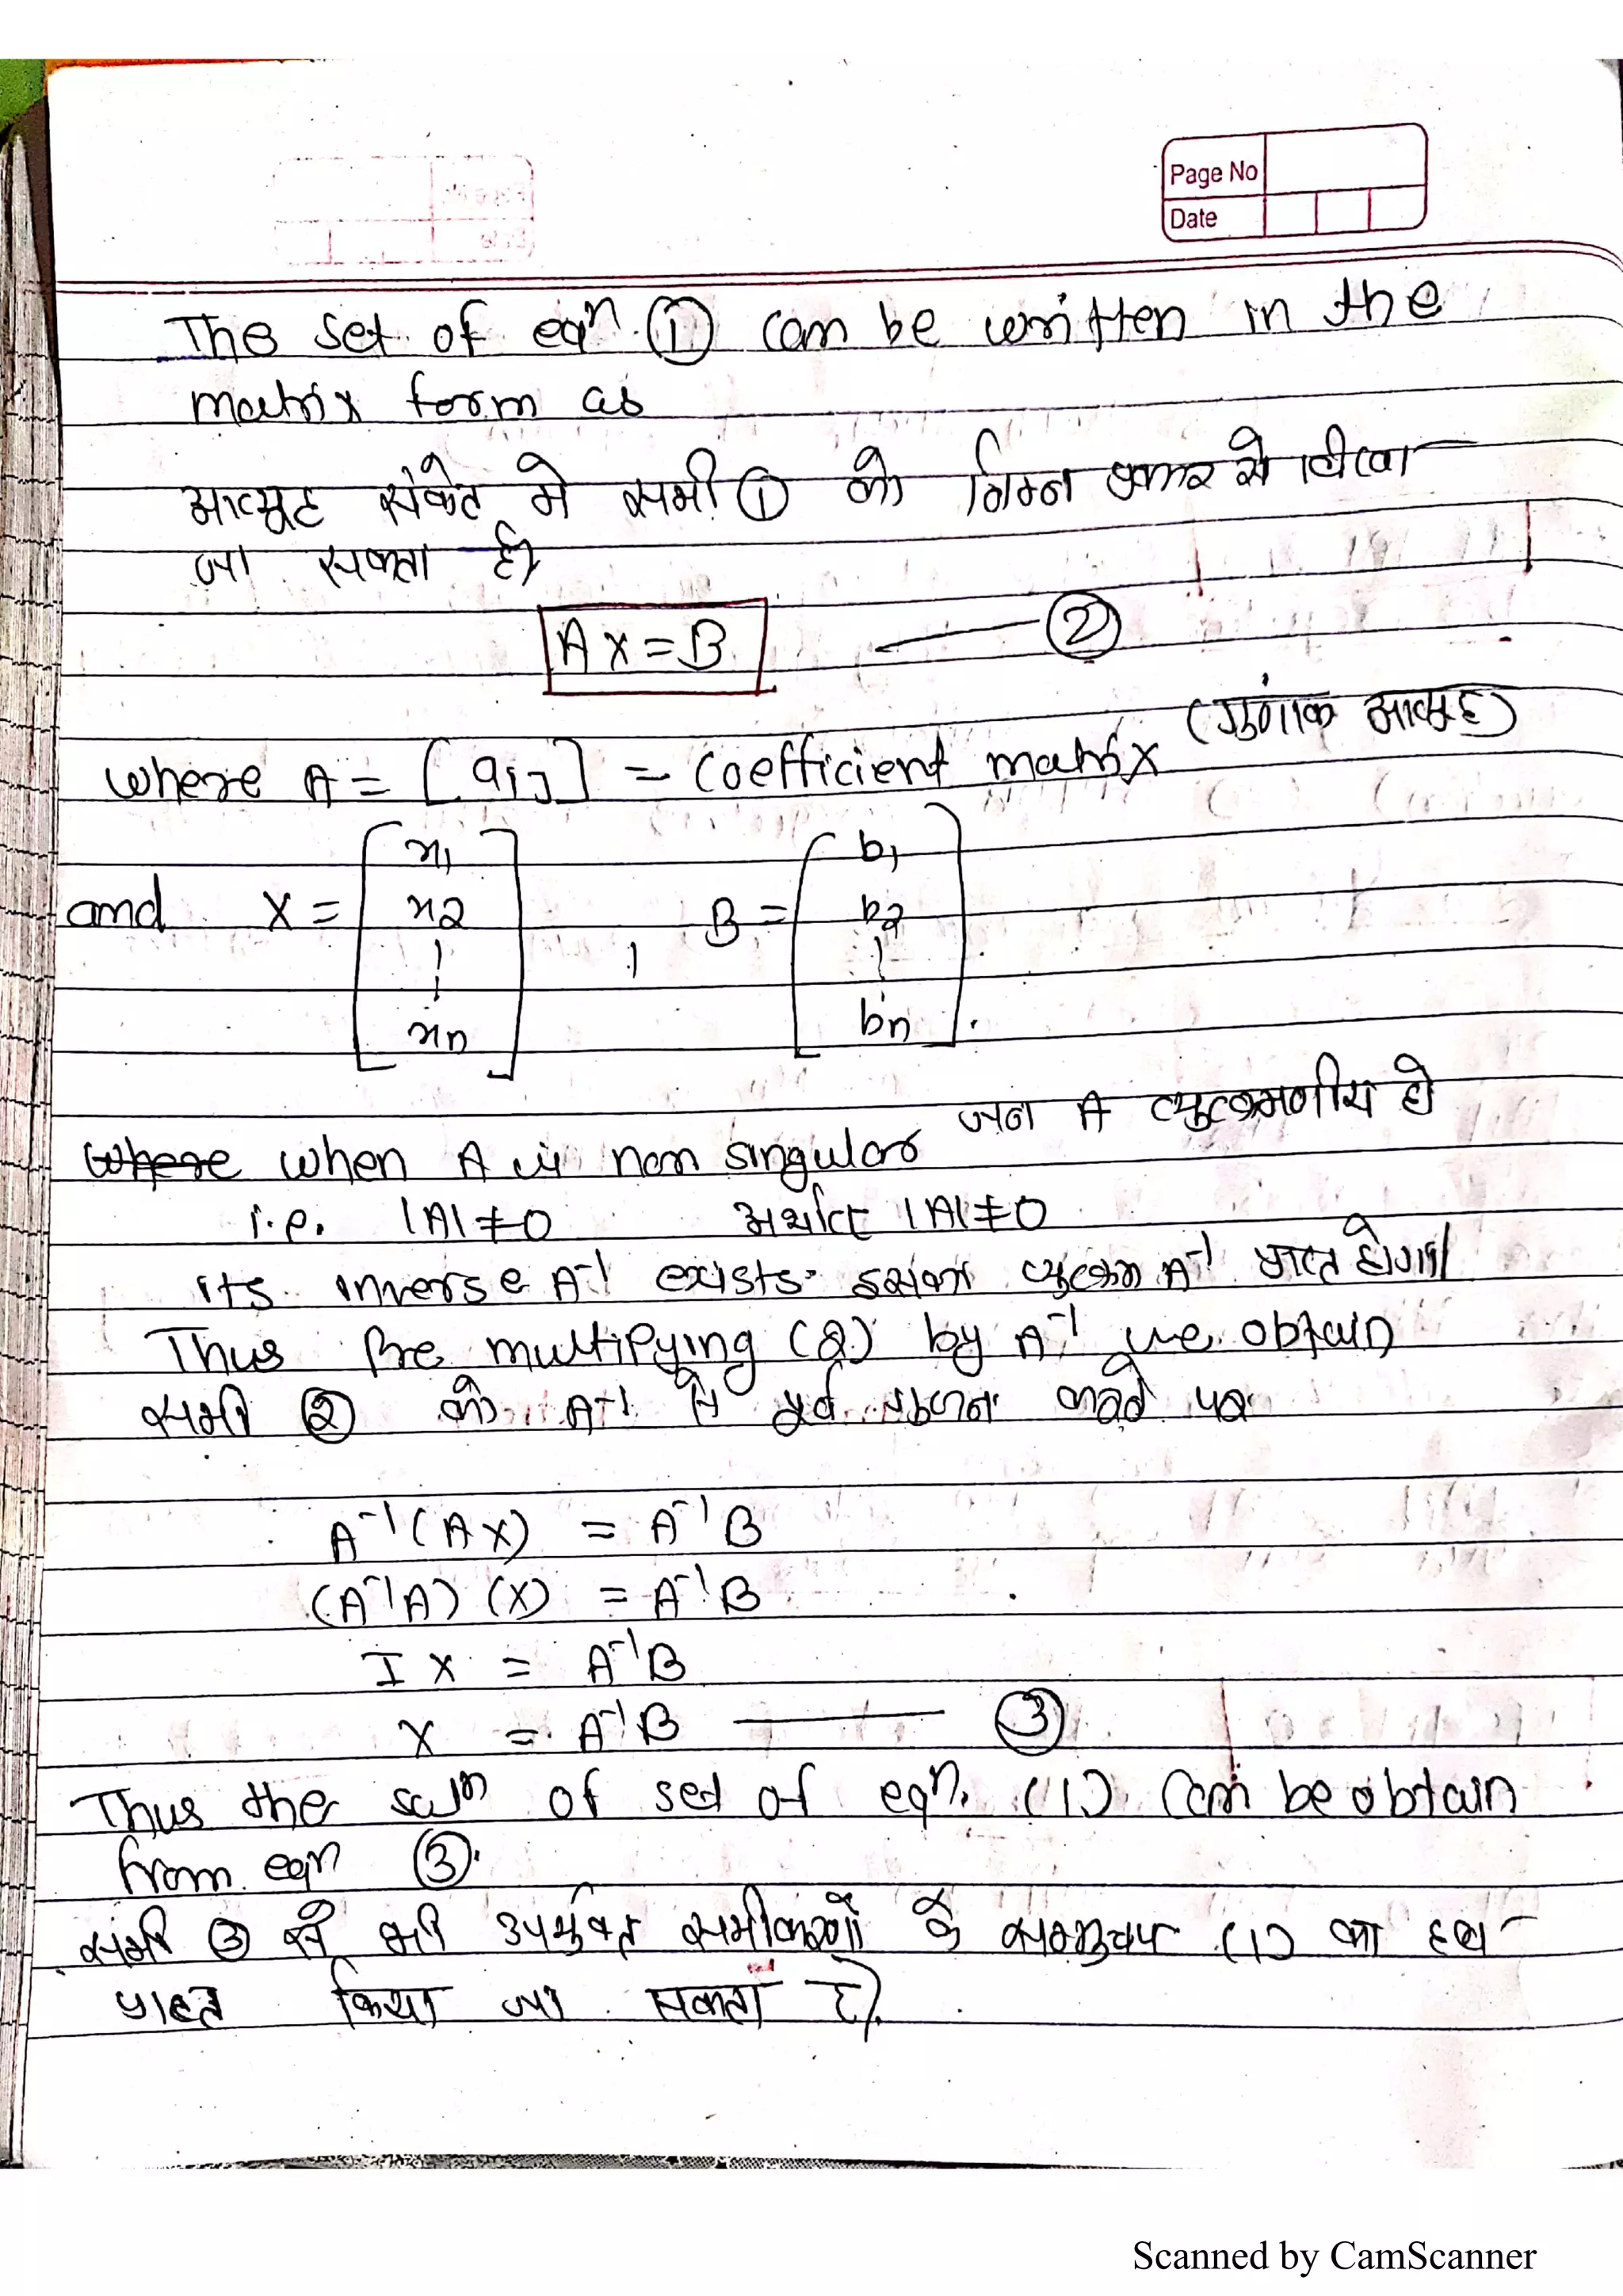 Page No
Date
The set of eqn. ① can be written in the
matrix form as
आव्यूह संकेत मे समी ① को निम्न प्रकार से लिखा
जा सकता है।
AX = B ——— ②
where A = [aij] = Coefficient matrix (गुणांक आव्यूह)
and X = [x1 x2 ⋮ xn] , B = [b1 b2 ⋮ bn].
Where when A is non singular जब A व्युत्क्रमणीय हो
i.e. |A| ≠ 0 अर्थात |A| ≠ 0
its inverse A⁻¹ exists. इसका व्युत्क्रम A⁻¹ प्राप्त होगा।
Thus Pre multiplying (2) by A⁻¹ we obtain
समी ② को A⁻¹ से पूर्व गुणन करने पर
A⁻¹(AX) = A⁻¹B
(A⁻¹A) (X) = A⁻¹B
I X = A⁻¹B
X = A⁻¹B ——— ③
Thus the soln of set of eqn. (1) can be obtain
from eqn ③.
समी ③ से भी उपर्युक्त समीकरणों के समुच्चय (1) का हल
प्राप्त किया जा सकता है।
Scanned by CamScanner